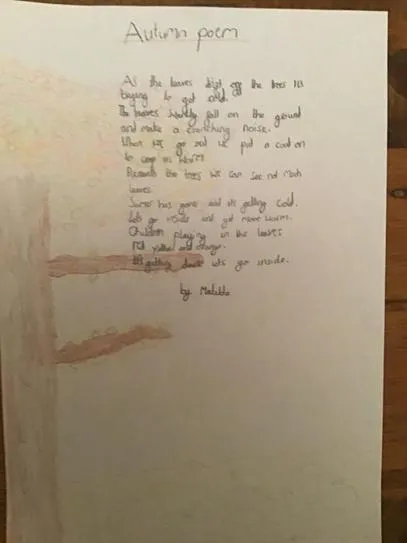 Autumn poem
As the leaves drist off the trees it's
beging to get cold.
The leaves fall on the ground
and make a crunching noise.
When we go out we put a coat on
to warm.
the trees we can see not much
leaves.
Sumer has gone and it's getting cold.
lets go inside and get more warm.
Children playing in the leaves
red yellow and orange.
It's getting dark lets go inside.
by